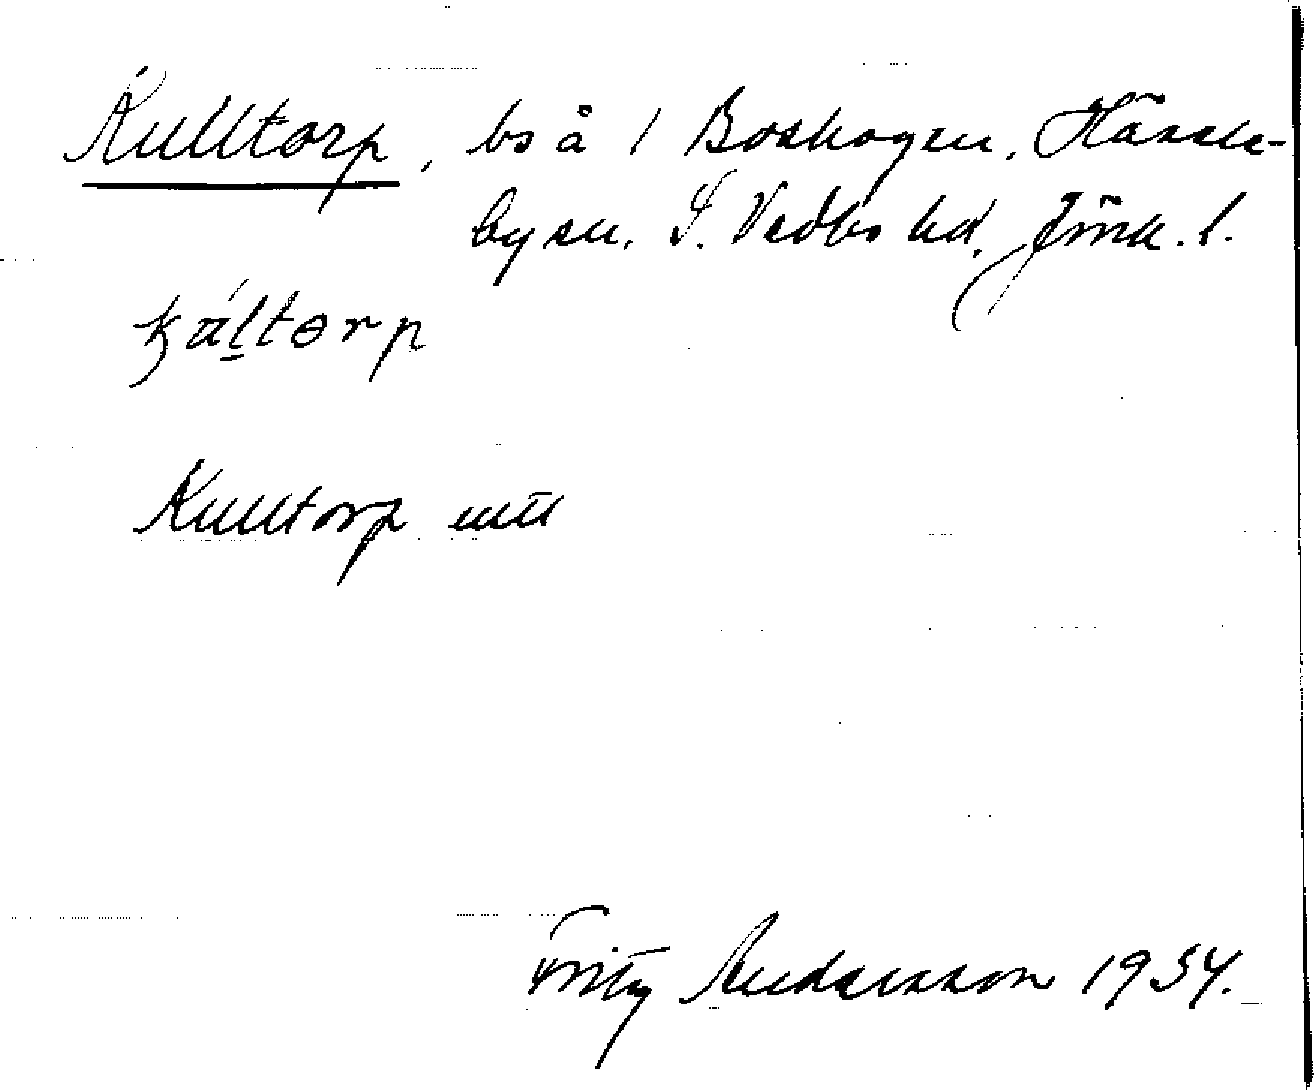 Kulltorp, bs å 1 Boskogen, Hässle-
by sn. S. Vedbo hd. Jönk. l.
Kulltorp
Fritz Andersson 1934.